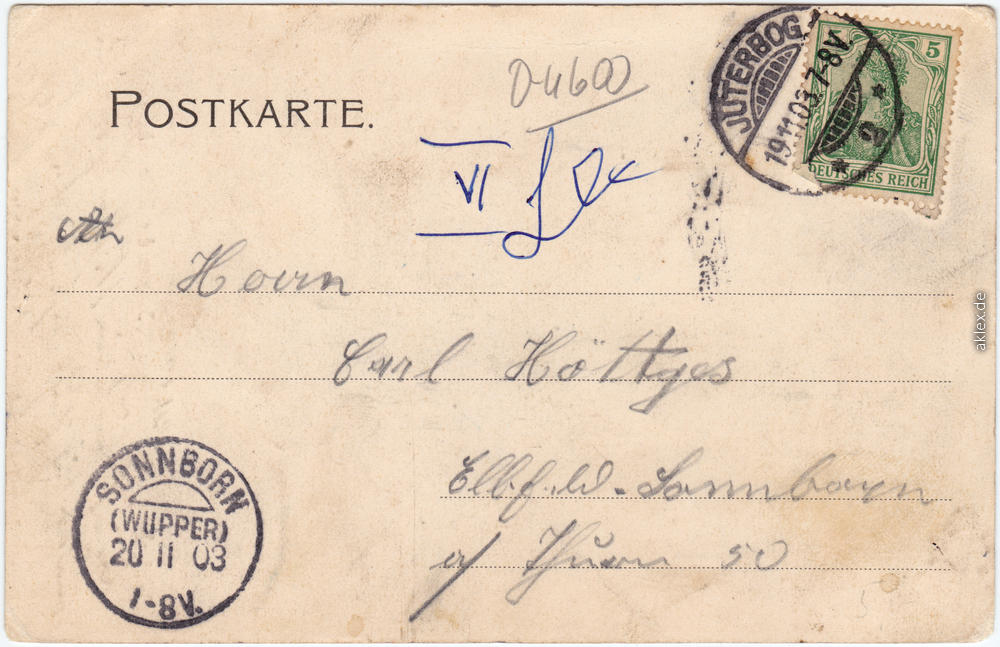 04600
POSTKARTE.
VI
JÜTERBOG 1
19.11.03. 7-8V.
* 2 *
5
DEUTSCHES REICH
Herrn
Carl Höttges
Elbfeld-Sonnborn
a/ Thurn 50
SONNBORN
(WUPPER)
20 11 03
1-8V.
aklex.de